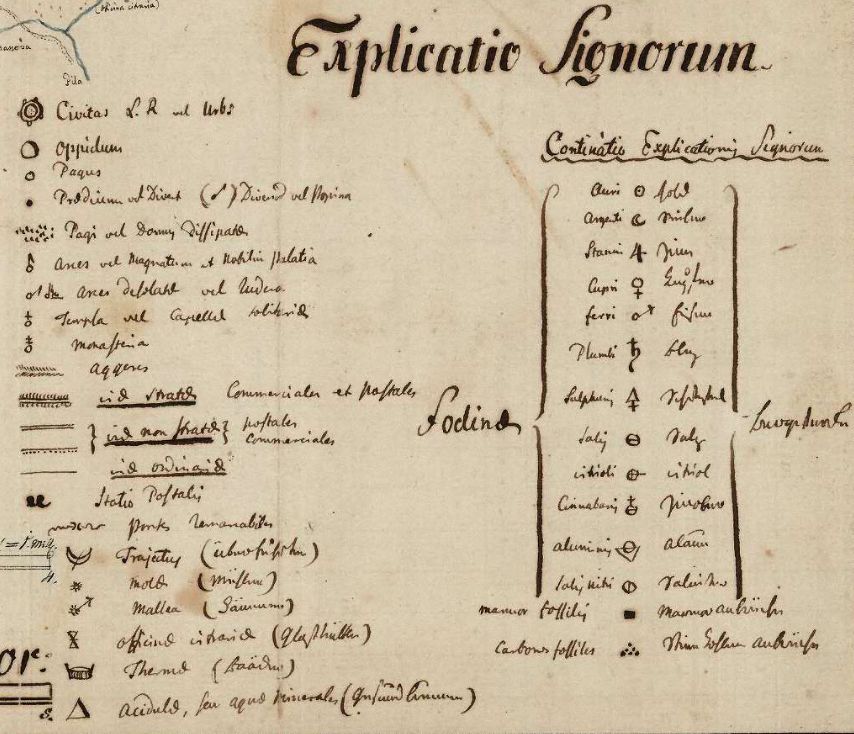 Explicatio Signorum
Pila
Civitas L. R vel Urbs
Oppidum
Pagus
Prædium vel Divers
Pagi vel domus dissipatæ
Arces vel Magnatum et Nobilium palatia
Arces desolatæ vel rudera
Templa vel Capellæ solitariæ
Monasteria
aggeres
viæ stratæ Commerciales et postales
viæ non stratæ postales
commerciales
viæ ordinariæ
Statio Postalis
Trajectus
Molæ (Mühlen)
Mallea (Hämmer)
officinæ vitrariæ (Glashütten)
Thermæ (Bääder)
acidulæ, seu aquæ minerales (Gesundbrunnen)
Continuatio Explicationis Signorum
Fodinæ
Auri Gold
Argenti Silber
Stanni Zinn
Cupri Kupfer
ferri Eisen
Plumbi Bley
Sulphuris Schwefel
Salis Saltz
vitrioli vitriol
Cinnabaris Zinober
aluminis alaun
Salis nitri Saliter
Bergwerke
marmor fossilis Marmor aubrüche
Carbones fossiles Steinkohlen aubrüche